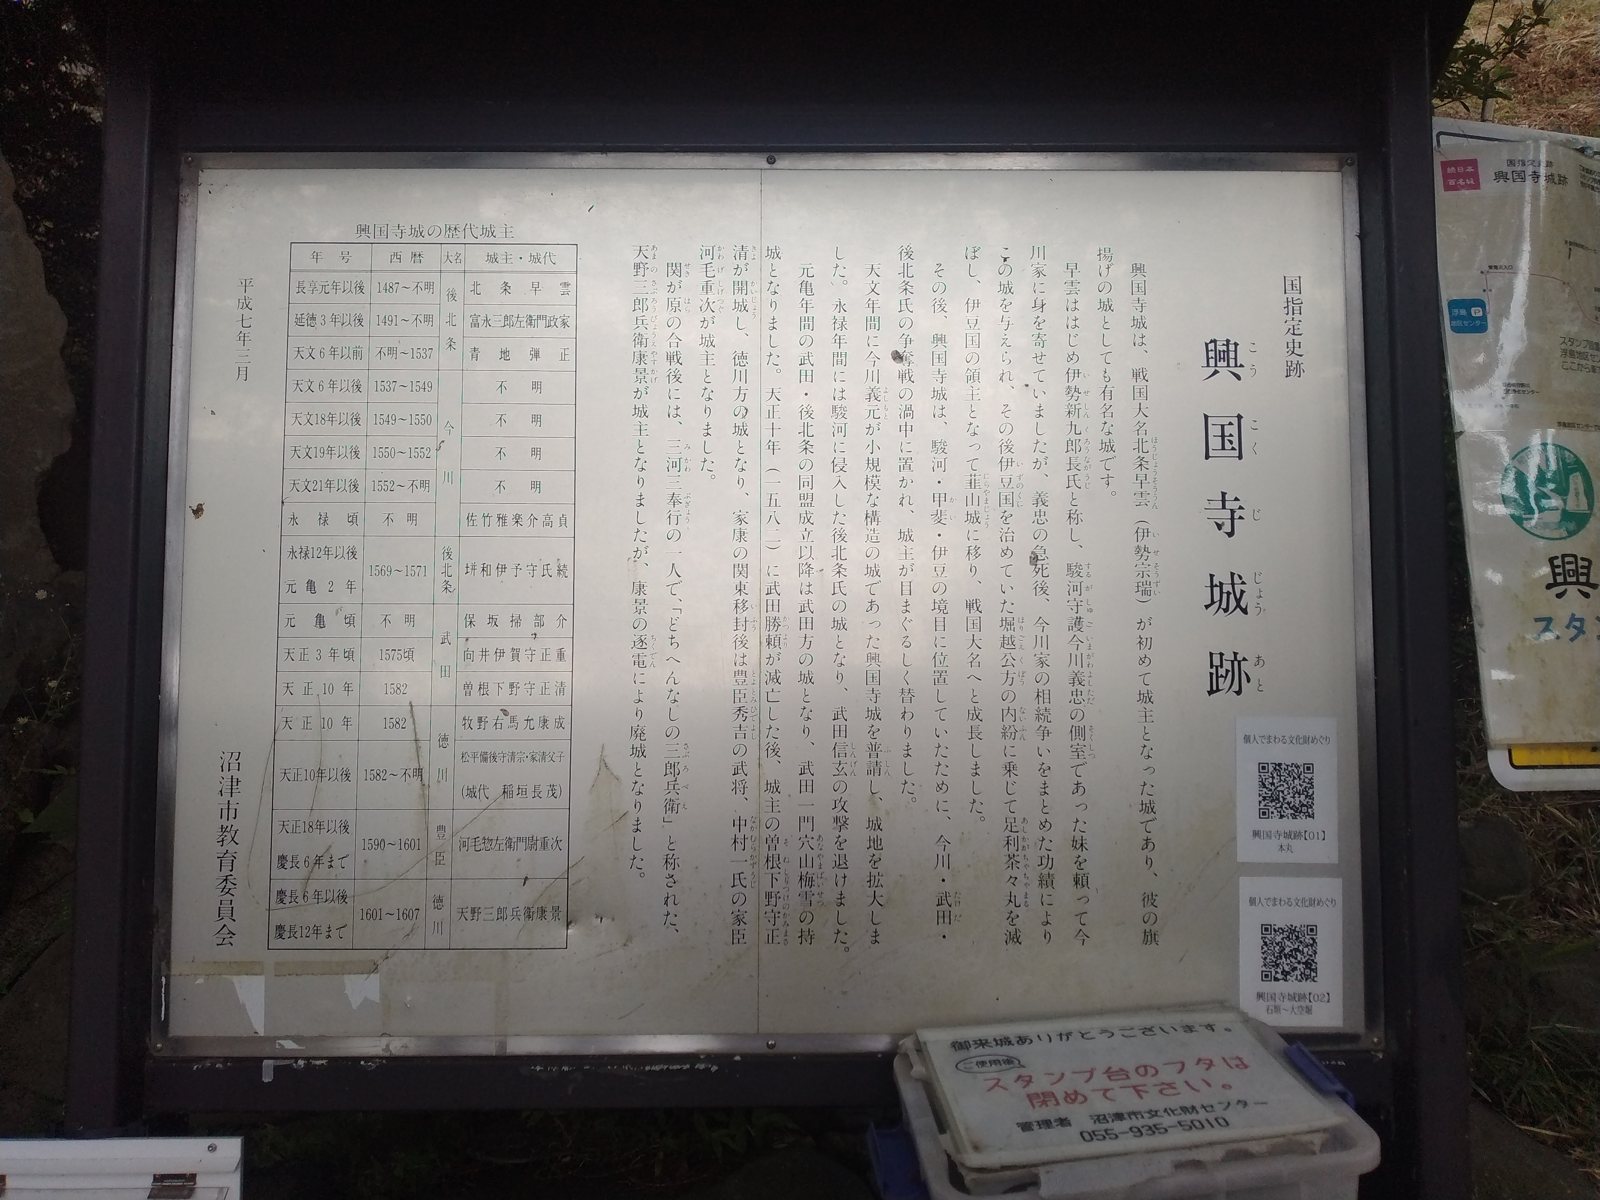 国指定史跡
興国寺城跡
こうこくじじょうあと
興国寺城は、戦国大名北条早雲（伊勢宗瑞）が初めて城主となった城であり、彼の旗
揚げの城としても有名な城です。
早雲ははじめ伊勢新九郎長氏と称し、駿河守護今川義忠の側室であった妹を頼って今
川家に身を寄せていましたが、義忠の急死後、今川家の相続争いをまとめた功績により
この城を与えられ、その後伊豆国を治めていた堀越公方の内紛に乗じて足利茶々丸を滅
ぼし、伊豆国の領主となって韮山城に移り、戦国大名へと成長しました。
その後、興国寺城は、駿河・甲斐・伊豆の境目に位置していたために、今川・武田・
後北条氏の争奪戦の渦中に置かれ、城主が目まぐるしく替わりました。
天文年間に今川義元が小規模な構造の城であった興国寺城を普請し、城地を拡大しま
した。永禄年間には駿河に侵入した後北条氏の城となり、武田信玄の攻撃を退けました。
元亀年間の武田・後北条の同盟成立以降は武田方の城となり、武田一門穴山梅雪の持
城となりました。天正十年（一五八二）に武田勝頼が滅亡した後、城主の曽根下野守正
清が開城し、徳川方の城となり、家康の関東移封後は豊臣秀吉の武将、中村一氏の家臣
河毛重次が城主となりました。
関が原の合戦後には、三河三奉行の一人で、「どちへんなしの三郎兵衛」と称された、
天野三郎兵衛康景が城主となりましたが、康景の逐電により廃城となりました。
興国寺城の歴代城主
年号 西暦 大名 城主・城代
長享元年以後 1487～不明 後北条 北条早雲
延徳3年以後 1491～不明 富永三郎左衛門政家
天文6年以前 不明～1537 青地弾正
天文6年以後 1537～1549 今川 不明
天文18年以後 1549～1550 不明
天文19年以後 1550～1552 不明
天文21年以後 1552～不明 不明
永禄頃 不明 佐竹雅楽介高貞
永禄12年以後
元亀2年 1569～1571 後北条 垪和伊予守氏続
元亀頃 不明 武田 保坂掃部介
天正3年頃 1575頃 向井伊賀守正重
天正10年 1582 曽根下野守正清
天正10年 1582 徳川 牧野右馬允康成
天正10年以後 1582～不明 松平備後守清宗・家清父子
(城代 稲垣長茂)
天正18年以後
慶長6年まで 1590～1601 豊臣 河毛惣左衛門尉重次
慶長6年以後
慶長12年まで 1601～1607 徳川 天野三郎兵衛康景
平成七年三月
沼津市教育委員会
個人でまわる文化財めぐり
興国寺城跡【01】
本丸
個人でまわる文化財めぐり
興国寺城跡【02】
石垣～大空堀
御来城ありがとうございます。
ご使用後
スタンプ台のフタは
閉めて下さい。
管理者 沼津市文化財センター
055-935-5010
続日本
百名城
国指定史跡
興国寺城跡
浮島
地区センター
P
興
スタン